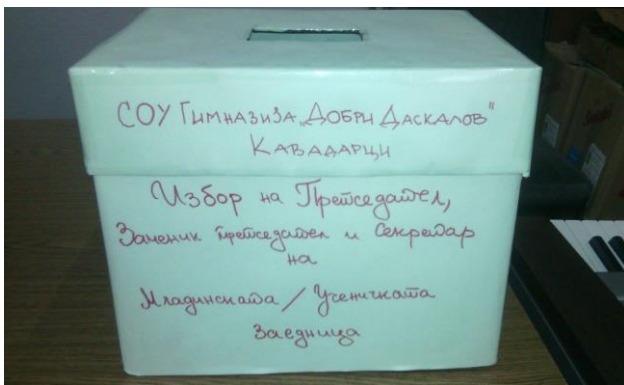 СОУ Гимназија „Добри Даскалов"
Кавадарци
Избор на Претседател,
Заменик претседател и Секретар
на
Младинската / Ученичката
Заедница